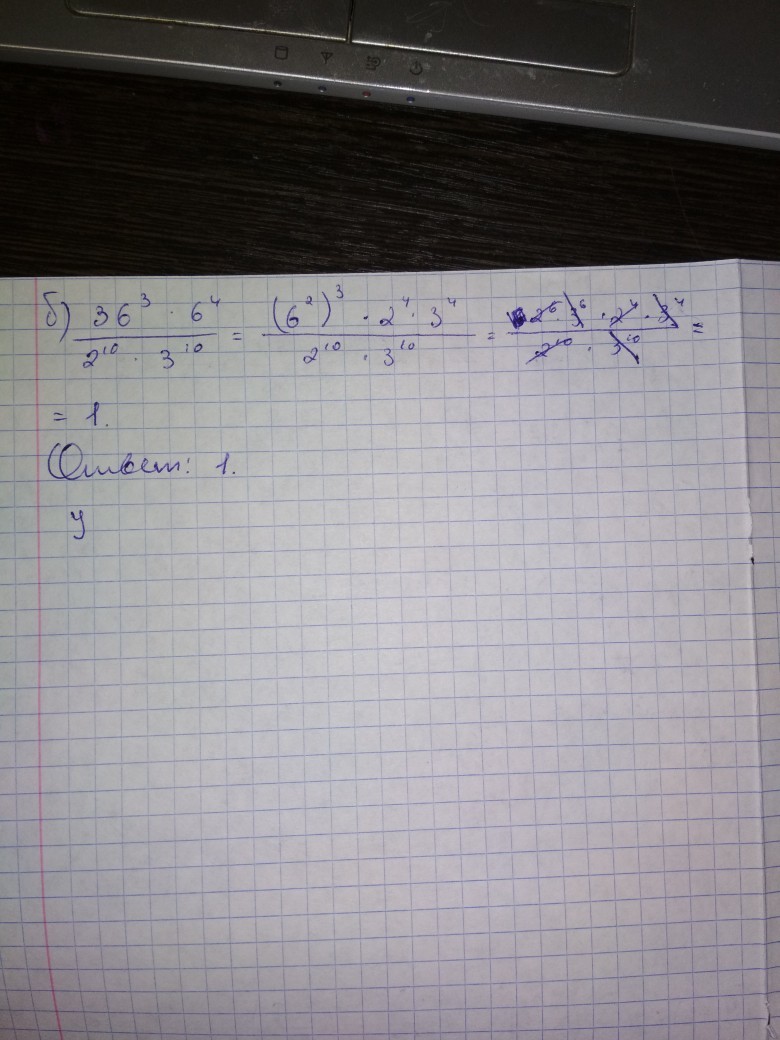 б) 36³ · 6⁴ / 2¹⁰ · 3¹⁰ = (6²)³ · 2⁴ · 3⁴ / 2¹⁰ · 3¹⁰ = 2⁶ · 3⁶ · 2⁴ · 3⁴ / 2¹⁰ · 3¹⁰ =
= 1.
Ответ: 1.
у